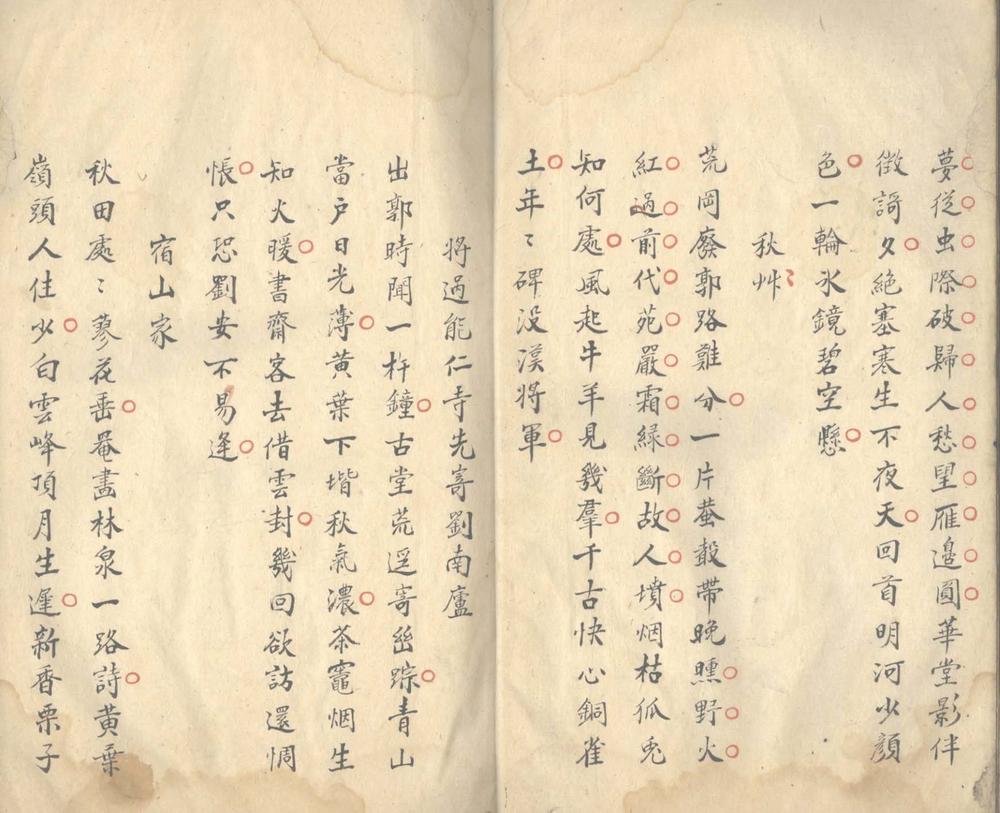 夢從虫際破歸人愁望雁邊圓華堂影伴
徴謌夕絶塞寒生不夜天回首明河少顔
色一輪氷鏡碧空懸
秋艸
荒岡廢郭路難分一片蛩聲帶晚曛野火
紅過前代苑嚴霜緑斷故人墳烟枯狐兎
知何處風起牛羊見幾羣千古快心銅雀
土年〻碑没漢将軍
将過能仁寺先寄劉南廬
出郭時聞一杵鐘古堂荒逕寄幽踪青山
當户日光薄黄葉下堦秋氣濃茶竈烟生
知火暖書齋客去借雲封幾回欲訪還惆
悵只恐劉安不易逢
宿山家
秋田處〻蓼花垂罨畵林泉一路詩黄葉
嶺頭人住少白雲峰頂月生遲新香栗子